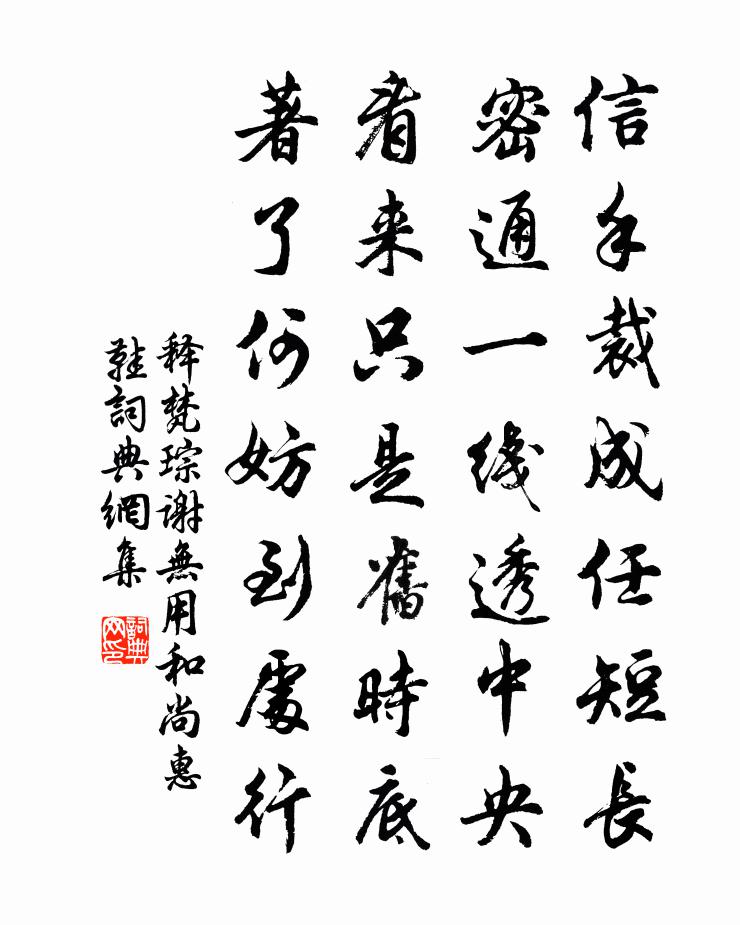 信手裁成任短長
密通一綫透中央
看来只是舊時底
著了何妨到處行
释梵琮谢無用和尚惠
鞋詞典網集
詞典
网印